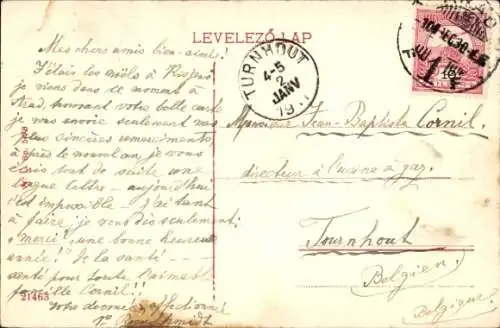 LEVELEZŐ LAP
TURNHOUT
4-5
2
JANV
19
Mes chers amis bien-aimés!
J'étais les
je viens dans ce moment à
Arad, trouvant votre belle carte
je vous envoie seulement mes
plus sincères remerciments
après le nouvel an je vous
écris tout de suite une
longue lettre - aujourd'hui
c'est impossible - j'ai tant
à faire, je vous dis seulement:
"merci", "une bonne heureuse
année!" De la santé
santé pour toute l'aimable
famille Cornil!!
votre dévoué affectionné
21463
Monsieur Jean-Baptista Cornil,
directeur à l'usine à gaz,
Tournhout
Belgien,
Belgique